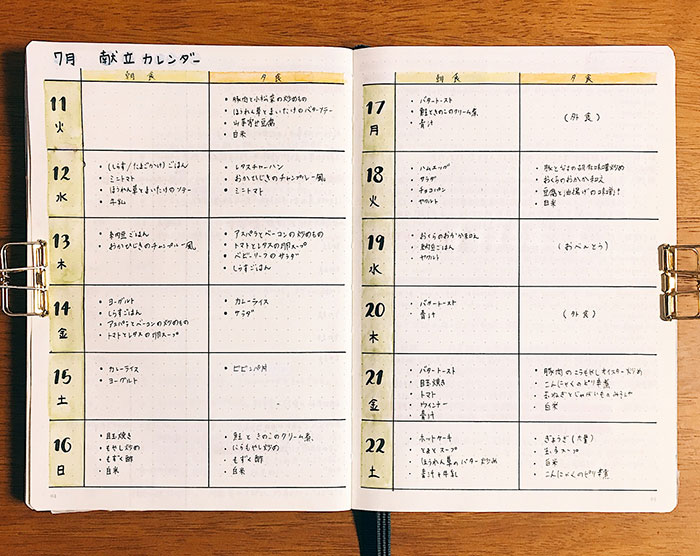 7月 献立カレンダー
朝食 夕食
11 火
・豚肉と小松菜の炒めもの
・ほうれん草とまいたけのバターソテー
・山芋寄せ豆腐
・白米
12 水
・(しらす/たまごかけ)ごはん
・ミニトマト
・ほうれん草とまいたけのソテー
・牛乳
・レタスチャーハン
・おかひじきのチャンプルー風
・ミニトマト
13 木
・納豆ごはん
・おかひじきのチャンプルー風
・アスパラとベーコンの炒めもの
・トマトとレタスの卵スープ
・ベビーリーフのサラダ
・しらすごはん
14 金
・ヨーグルト
・しらすごはん
・アスパラとベーコンの炒めもの
・トマトとレタスの卵スープ
・カレーライス
・サラダ
15 土
・カレーライス
・ヨーグルト
・ビビンバ丼
16 日
・目玉焼き
・もやし炒め
・もずく酢
・白米
・鮭ときのこのクリーム煮
・にらもやし炒め
・もずく酢
・白米
朝食 夕食
17 月
・バタートースト
・鮭ときのこのクリーム煮
・青汁
(外食)
18 火
・ハムエッグ
・サラダ
・チョコパン
・ヤクルト
・豚となすの味噌炒め
・おくらのおかか和え
・豆腐と油揚げの味噌汁
・白米
19 水
・おくらのおかか和え
・納豆ごはん
・ヤクルト
(おべんとう)
20 木
・バタートースト
・青汁
(外食)
21 金
・バタートースト
・目玉焼き
・トマト
・ウインナー
・青汁
・豚肉のこうもやしオイスター炒め
・こんにゃくのピリ辛煮
・玉ねぎとじゃがいものみそ汁
・白米
22 土
・ホットケーキ
・とまとスープ
・ほうれん草のバター炒め
・青汁+牛乳
・ぎょうざ(大葉)
・玉子スープ
・白米
・こんにゃくのピリ辛煮